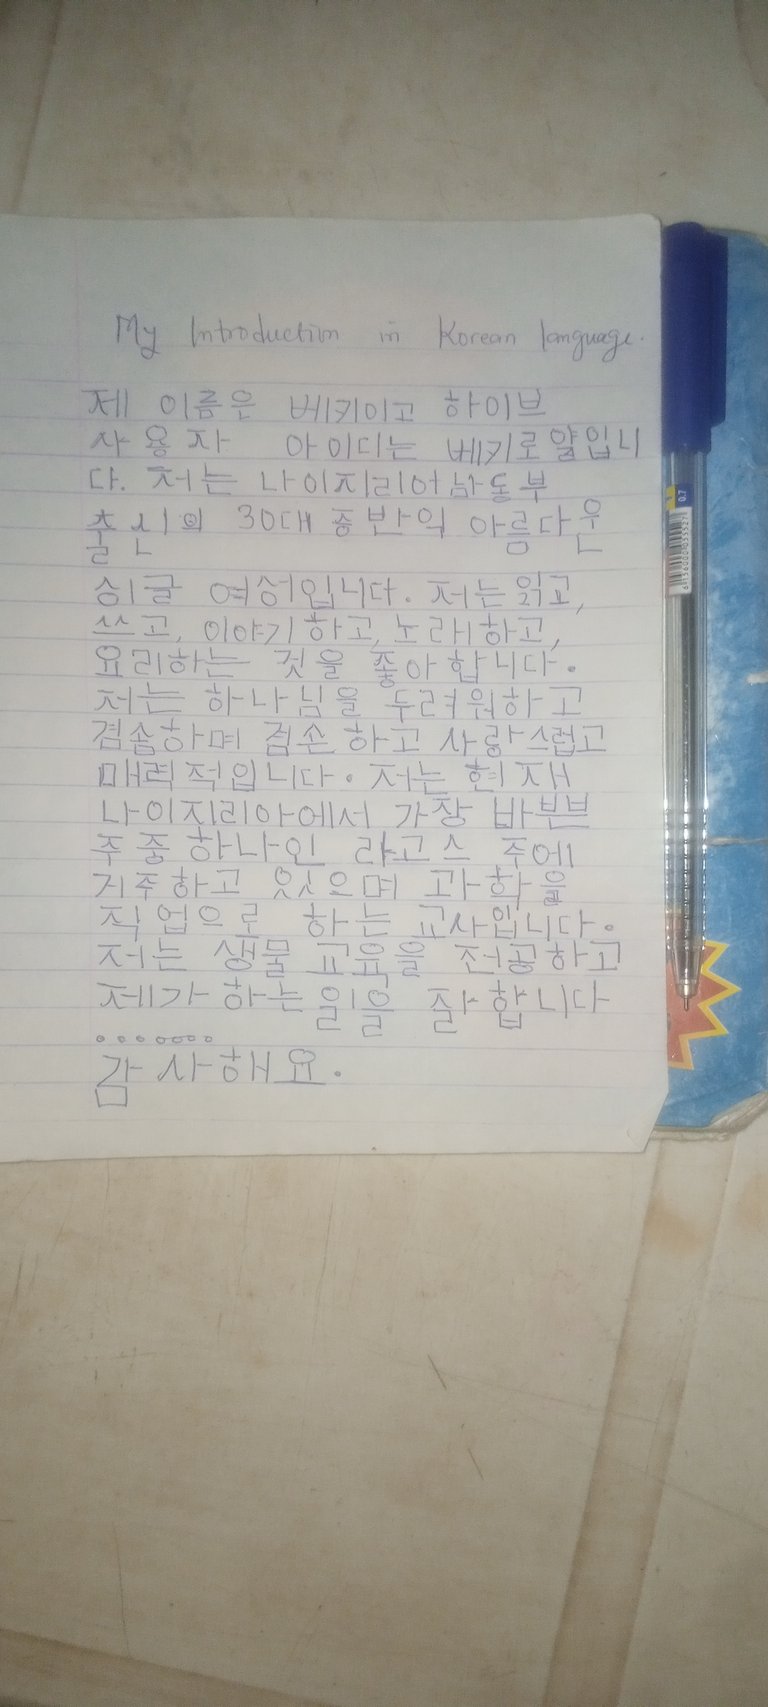 My Introduction in Korean language.
제 이름은 베키이고 하이브
사용자 아이디는 베키로얄입니
다. 저는 나이지리아 남동부
출신의 30대 중반의 아름다운
싱글 여성입니다. 저는 읽고,
쓰고, 이야기하고, 노래하고,
요리하는 것을 좋아합니다.
저는 하나님을 두려워하고
겸솜하며 겸손하고 사랑스럽고
매력적입니다. 저는 현재
나이지리아에서 가장 바쁜
주중 하나인 라고스 주에
거주하고 있으며 과학을
직업으로 하는 교사입니다.
저는 생물 교육을 전공하고
제가 하는 일을 잘 합니다
.......
감사해요.
0.7